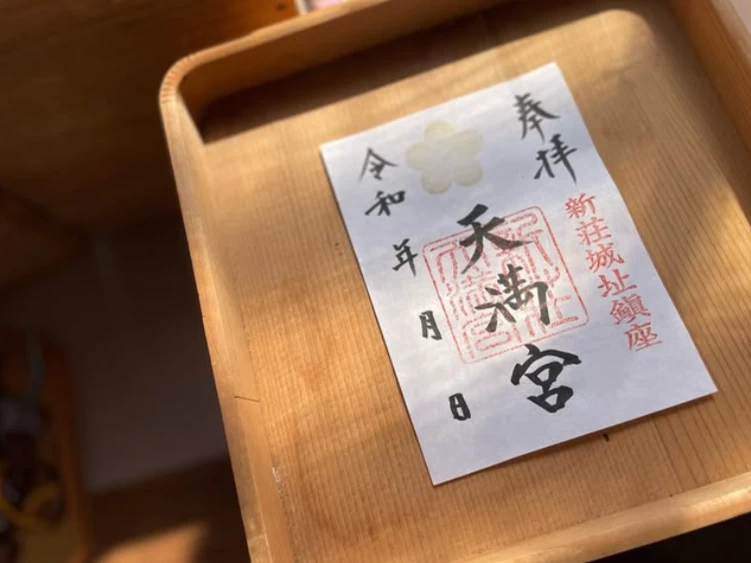 奉拝
新荘城址鎮座
天満宮
令和 年 月 日